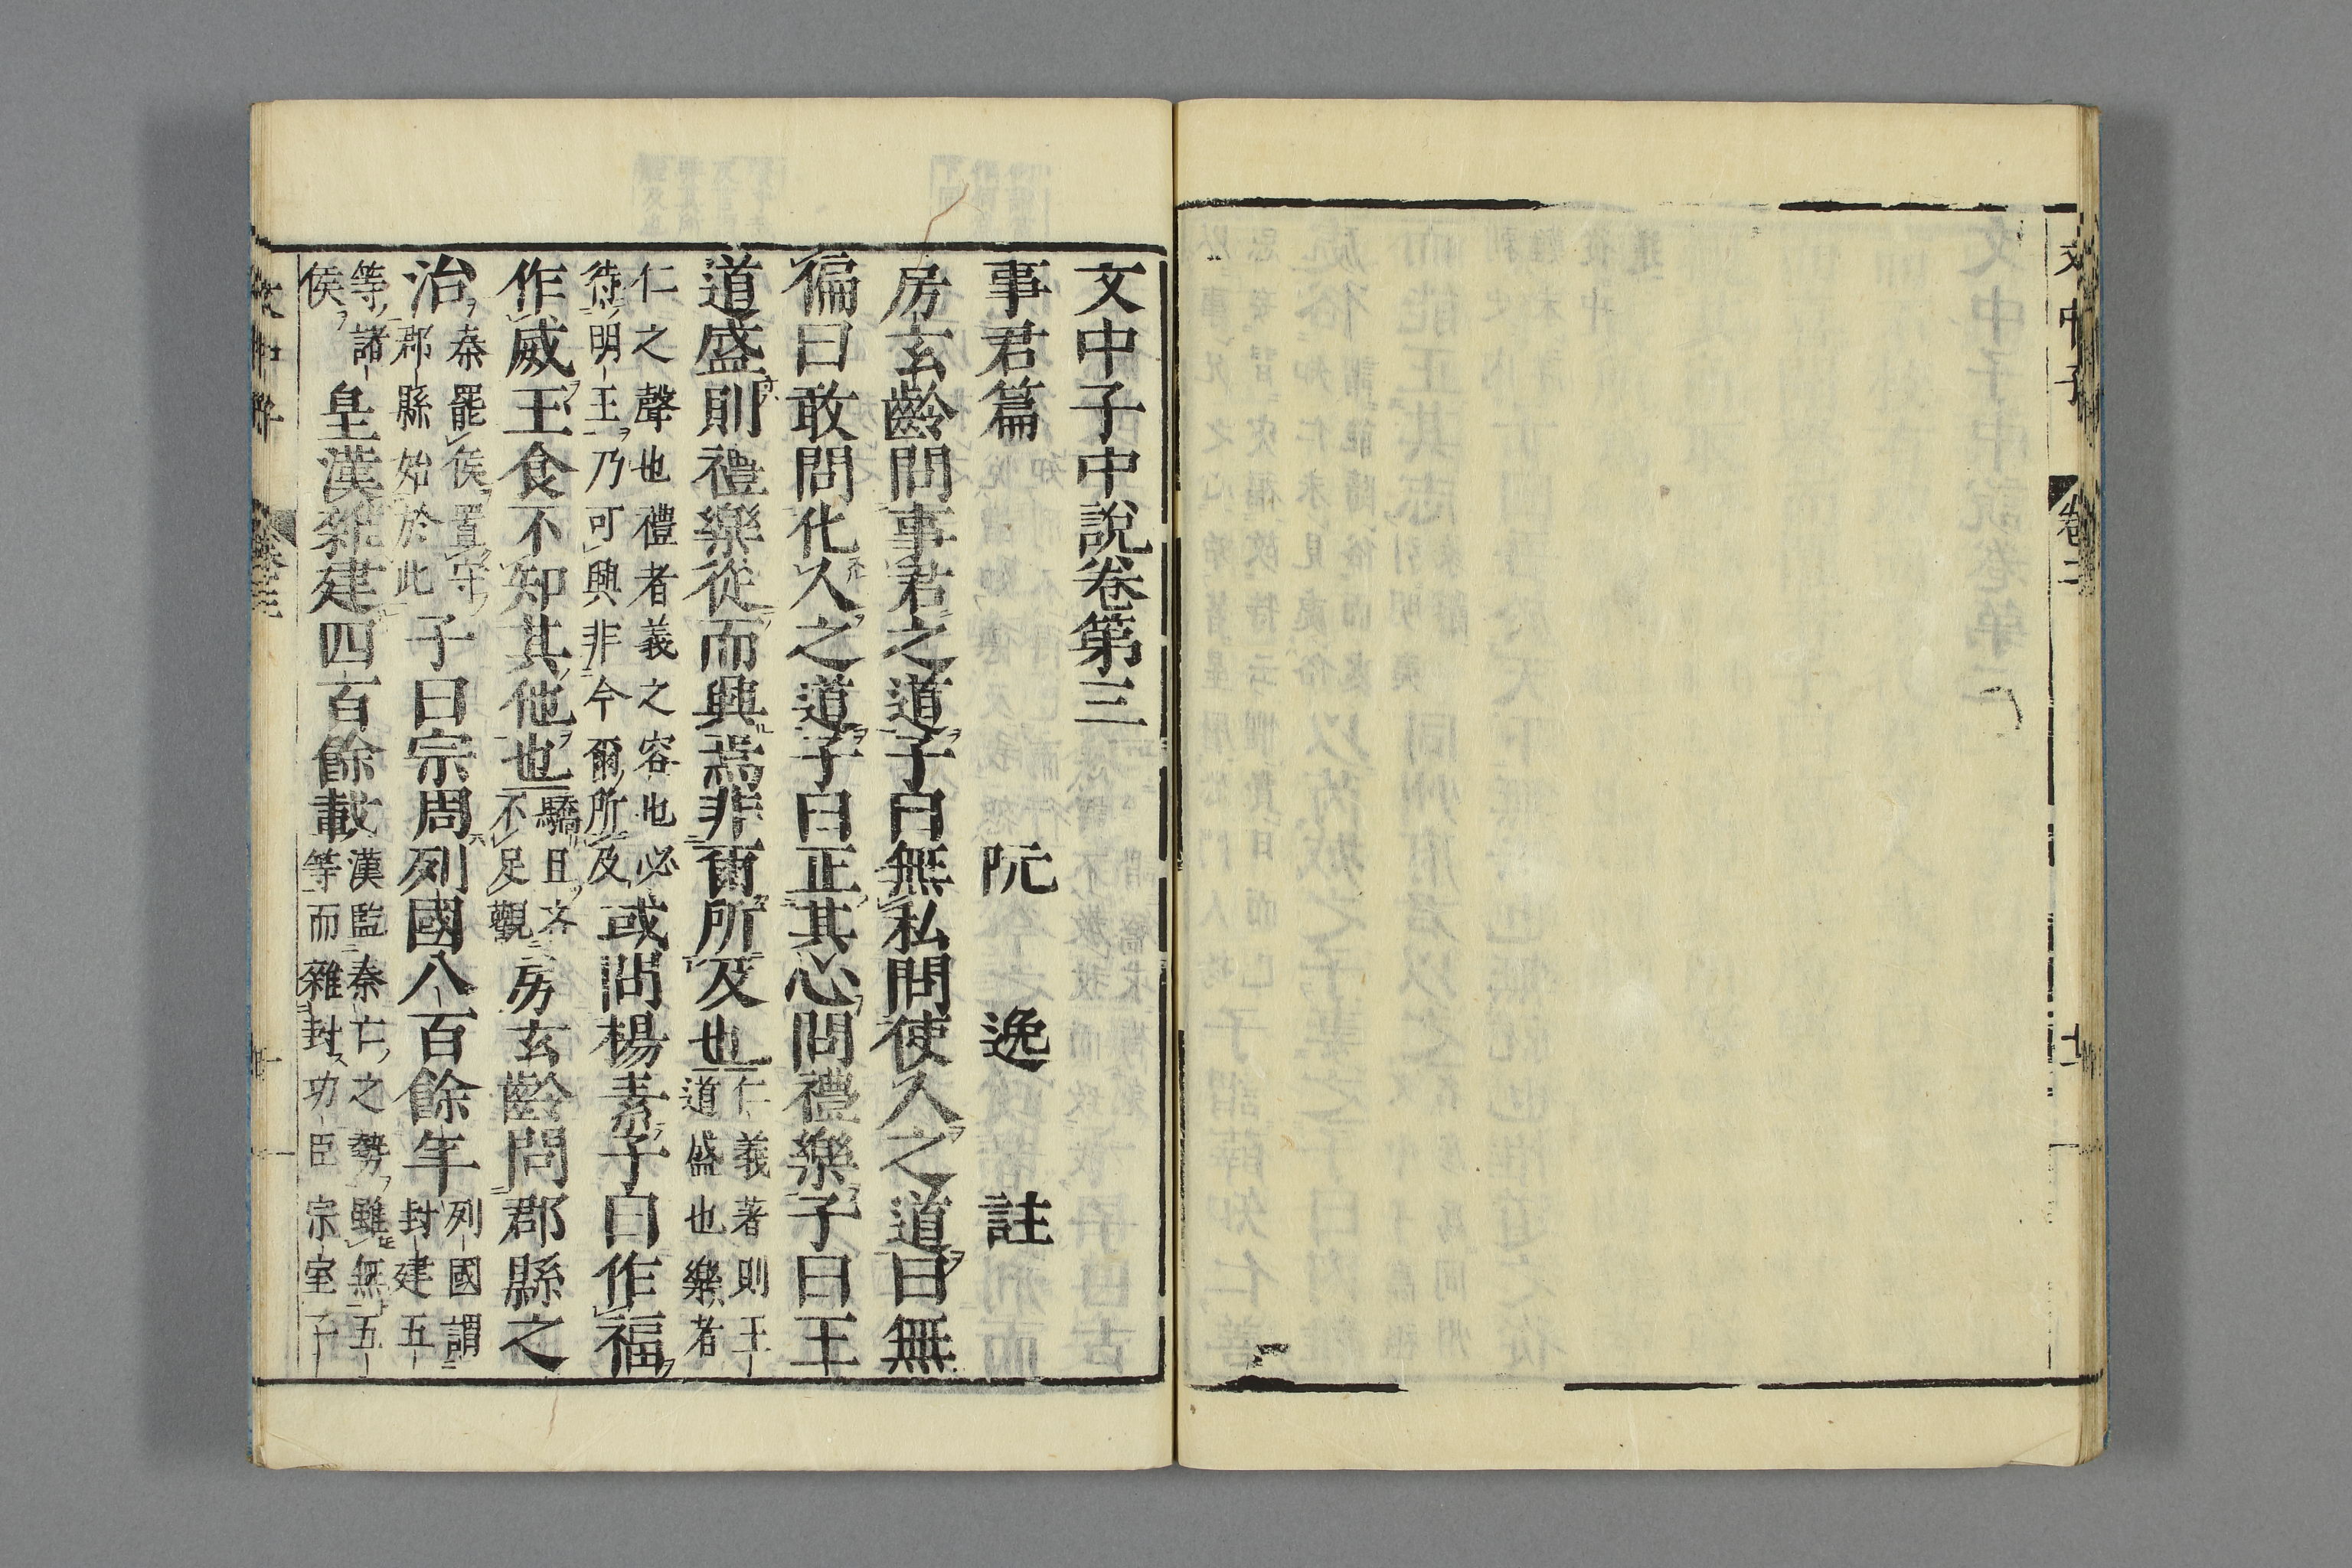 文中子
卷二
文中子中說卷第三
事君篇 阮逸註
房玄齡問事君之道子曰無私問使人之道曰無
偏曰敢問化人之道子曰正其心問禮樂子曰王
道盛則禮樂從而興焉非爾所及也仁義著則王道盛也樂者
仁之聲也禮者義之容也必待明王乃可興非今爾所及或問楊素子曰作福
作威王食不知其他也驕且吝不足觀房玄齡問郡縣之
治秦罷侯置守郡縣始於此子曰宗周列國八百餘年列國謂封建五
等諸侯皇漢雜建四百餘載漢監秦亡之勢雖無五等而雜封功臣宗室子